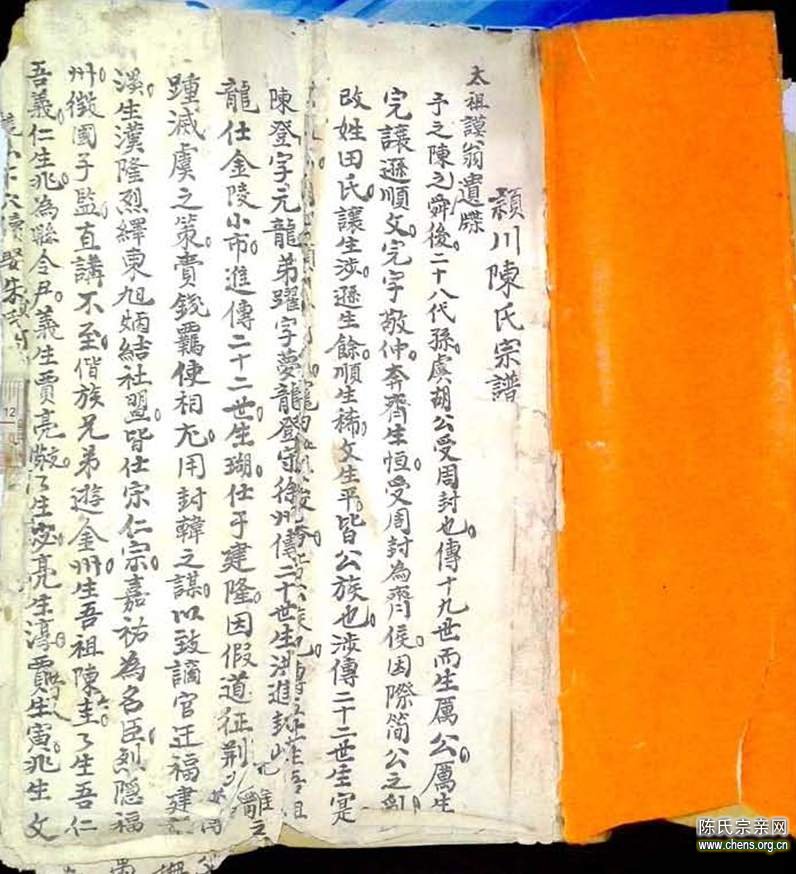 潁川陳氏宗譜
太祖謨翁遺牒
予之陳之舜後二十八代孫虞胡公受周封也傳十九世而生厲公厲生
完讓遜順文完字敬仲奔齊生恒受周封為齊侯因際簡公之
改姓田氏讓生涉遜生餘順生稀文生平皆公族也涉傳二十二世生寔
陳登字元龍弟躍字夢龍登守徐州傳二十世生洪進封
龍仕金陵小市進傳二十二世生瑚仕于建隆因假道征荆
踵滅虞之策費錢覊使相尤用封韓之謀以致謫官迁福建
漢生漢隆烈繹東旭炳結社盟皆仕宗仁宗嘉祐為名臣烈隱福
州徵國子監直講不至偕族兄弟遊金州生吾祖陳圭々生吾仁
吾義仁生兆為縣令尹義生賈亮敬々生 亮生淳賈生寅兆生文
娶朱
12
陈氏宗亲网
www.chens.org.cn